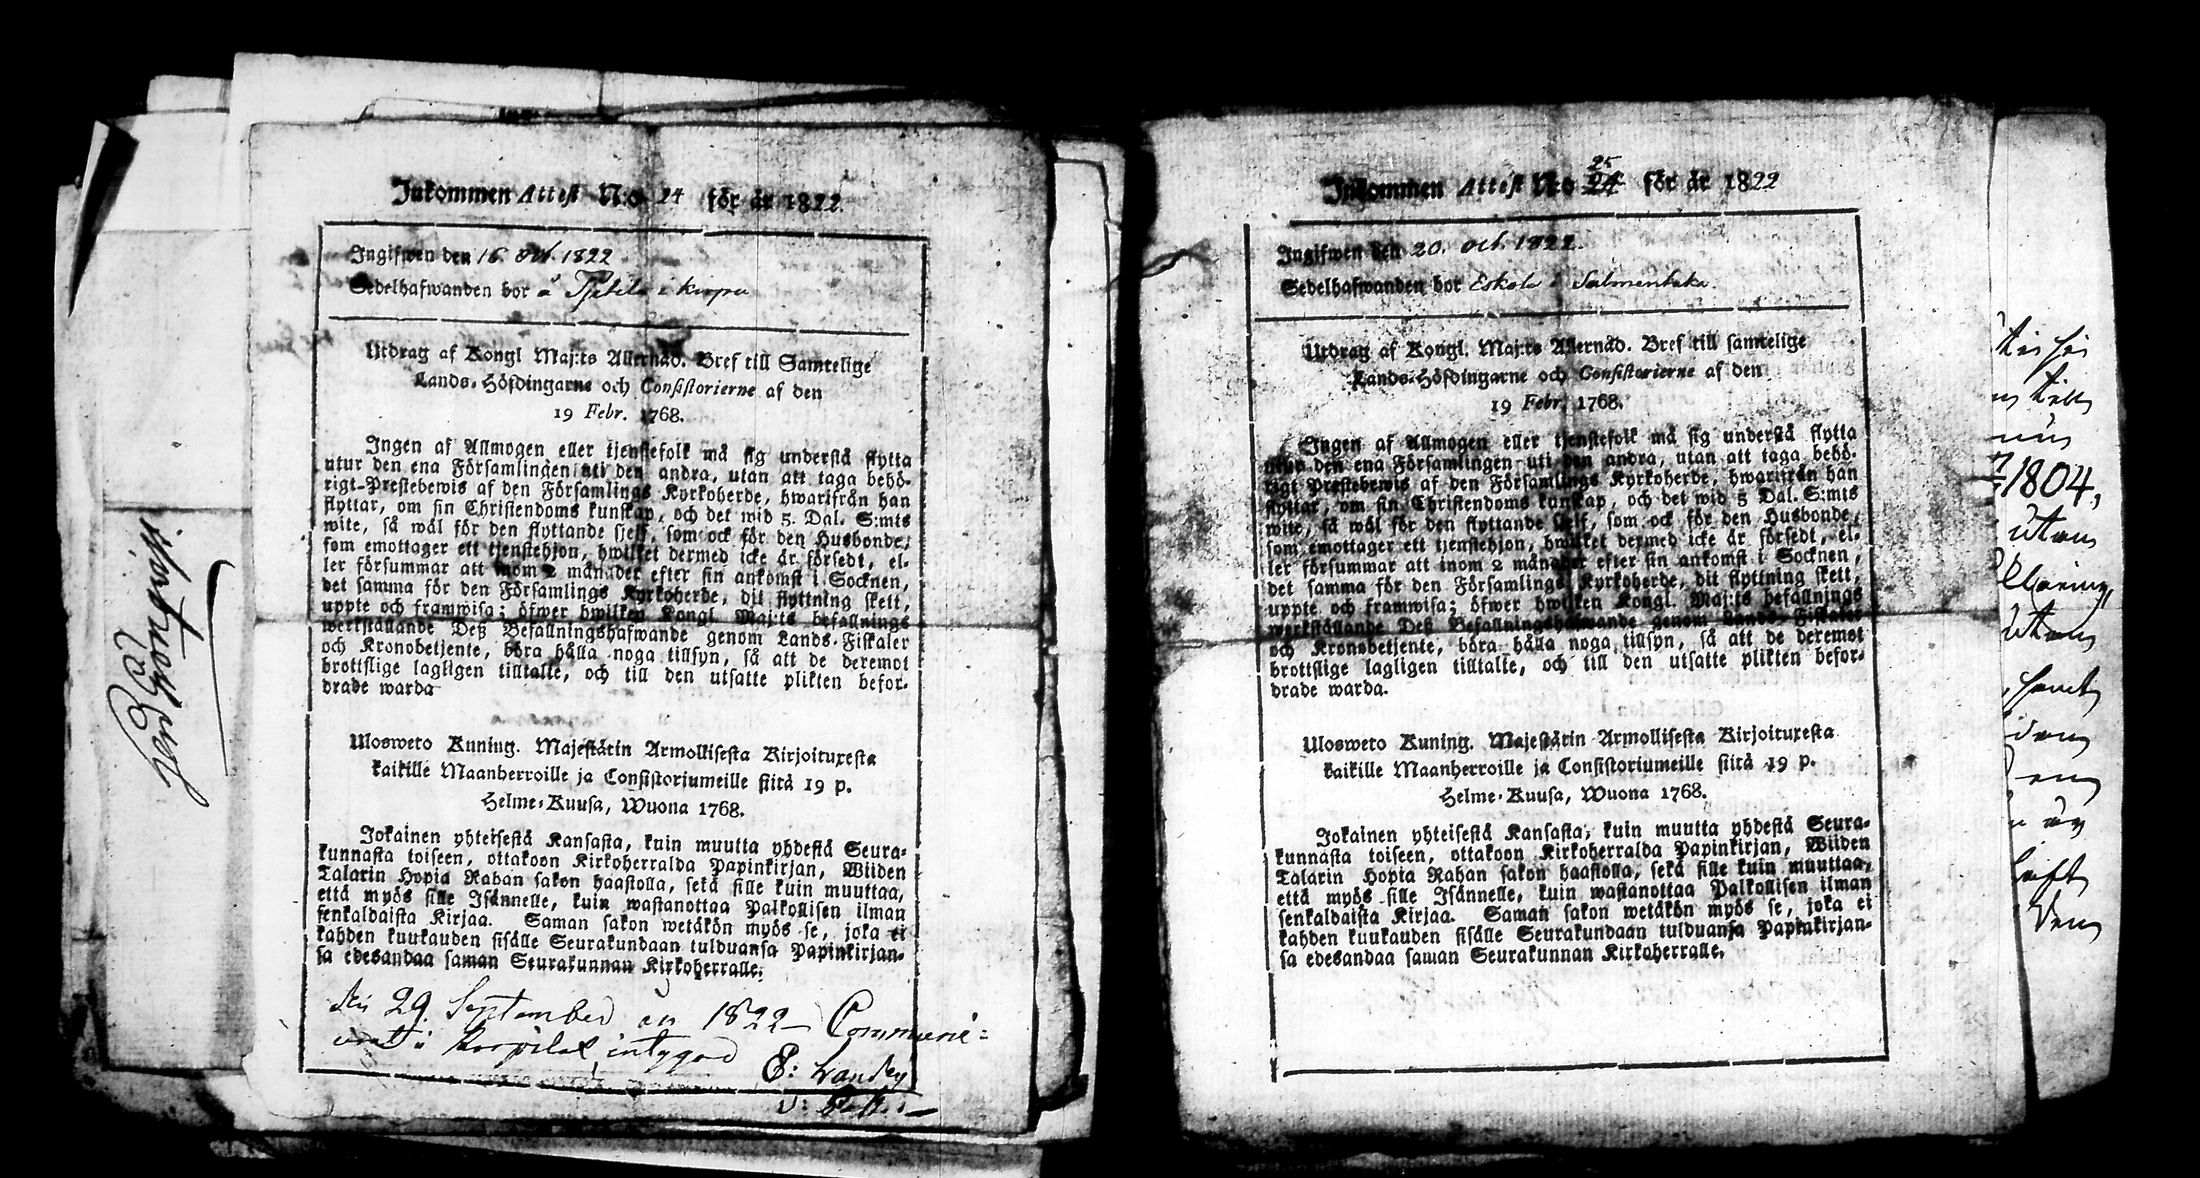 Inkommen Attest N:o 24 för år 1822
Ingifwen den 16 Oct. 1822
Sedelhafwanden bor å Tjetila i kirpu
Utdrag af Kongl Maj:ts Allernåd. Bref till Samtelige
Lands-Höfdingarne och Consistorierne af den
19 Febr. 1768.
Ingen af Allmogen eller tjenstefolk må sig understå flytta
utur den ena Församlingen uti den andra, utan att taga behö-
rigt Prestebewis af den Församlings Kyrkoherde, hwarifrån han
flyttar, om sin Christendoms kunskap, och det wid 5. Dal. S:mts
wite, så wäl för den flyttande sjelf, som ock för den Husbonde,
som emottager ett tjenstehjon, hwilket dermed icke är försedt, el-
ler försummar att inom 2 månader efter sin ankomst i Socknen,
det samma för den Församlings Kyrkoherde, dit flyttning skett,
uppte och framwisa; öfwer hwilken Kongl. Maj:ts befallnings
werkställande Deß Befallningshafwande genom Lands-Fiskaler
och Kronobetjente, böra hålla noga tillsyn, så att de deremot
brottslige lagligen tilltalte, och till den utsatte plikten befor-
drade warda
Ulosweto Kuning. Majestätin Armollisesta Kirjoituxesta
kaikille Maanherroille ja Consistoriumeille siitä 19 p.
Helme-Kuusa, Wuona 1768.
Jokainen yhteisestä Kansasta, kuin muutta yhdestä Seura-
kunnasta toiseen, ottakoon Kirkoherralda Papinkirjan, Wiiden
Talarin Hopia Rahan sakon haastolla, sekä sille kuin muuttaa,
että myös sille Isännelle, kuin wastanottaa Palkollisen ilman
senkaldaista Kirjaa. Saman sakon wetäkön myös se, joka ei
kahden kuukauden sisälle Seurakundaan tulduansa Papinkirjan-
sa edesandaa saman Seurakunnan Kirkoherralle.
den 29 September år 1822 Communi-
intygar
Inkommen Attest N:o 24 25 för år 1822
Ingifwen den 20. Oct. 1822.
Sedelhafwanden bor Eskola i Salmentaka
Utdrag af Kongl. Maj:ts Allernåd. Bref till samtelige
Lands-Höfdingarne och Consistorierne af den
19 Febr. 1768.
Ingen af Allmogen eller tjenstefolk må sig understå flytta
utur den ena Församlingen uti den andra, utan att taga behö-
rigt Prestebewis af den Församlings Kyrkoherde, hwarifrån han
flyttar, om sin Christendoms kunskap, och det wid 5 Dal. S:mts
wite, så wäl för den flyttande sjelf, som ock för den Husbonde,
som emottager ett tjenstehjon, hwilket dermed icke är försedt, el-
ler försummar att inom 2 månader efter sin ankomst i Socknen,
det samma för den Församlings Kyrkoherde, dit flyttning skett,
uppte och framwisa; öfwer hwilken Kongl. Maj:ts befallnings
werkställande Deß Befallningshafwande genom Lands-Fiskaler
och Kronobetjente, böra hålla noga tillsyn, så att de deremot
brottslige lagligen tilltalte, och till den utsatte plikten befor-
drade warda.
Ulosweto Kuning. Majestätin Armollisesta Kirjoituxesta
kaikille Maanherroille ja Consistoriumeille siitä 19 p.
Helme-Kuusa, Wuona 1768.
Jokainen yhteisestä Kansasta, kuin muutta yhdestä Seura-
kunnasta toiseen, ottakoon Kirkoherralda Papinkirjan, Wiiden
Talarin Hopia Rahan sakon haastolla, sekä sille kuin muuttaa,
että myös sille Isännelle, kuin wastanottaa Palkollisen ilman
senkaldaista Kirjaa. Saman sakon wetäkön myös se, joka ei
kahden kuukauden sisälle Seurakundaan tulduansa Papinkirjan-
sa edesandaa saman Seurakunnan Kirkoherralle.
1804,
utan
utan